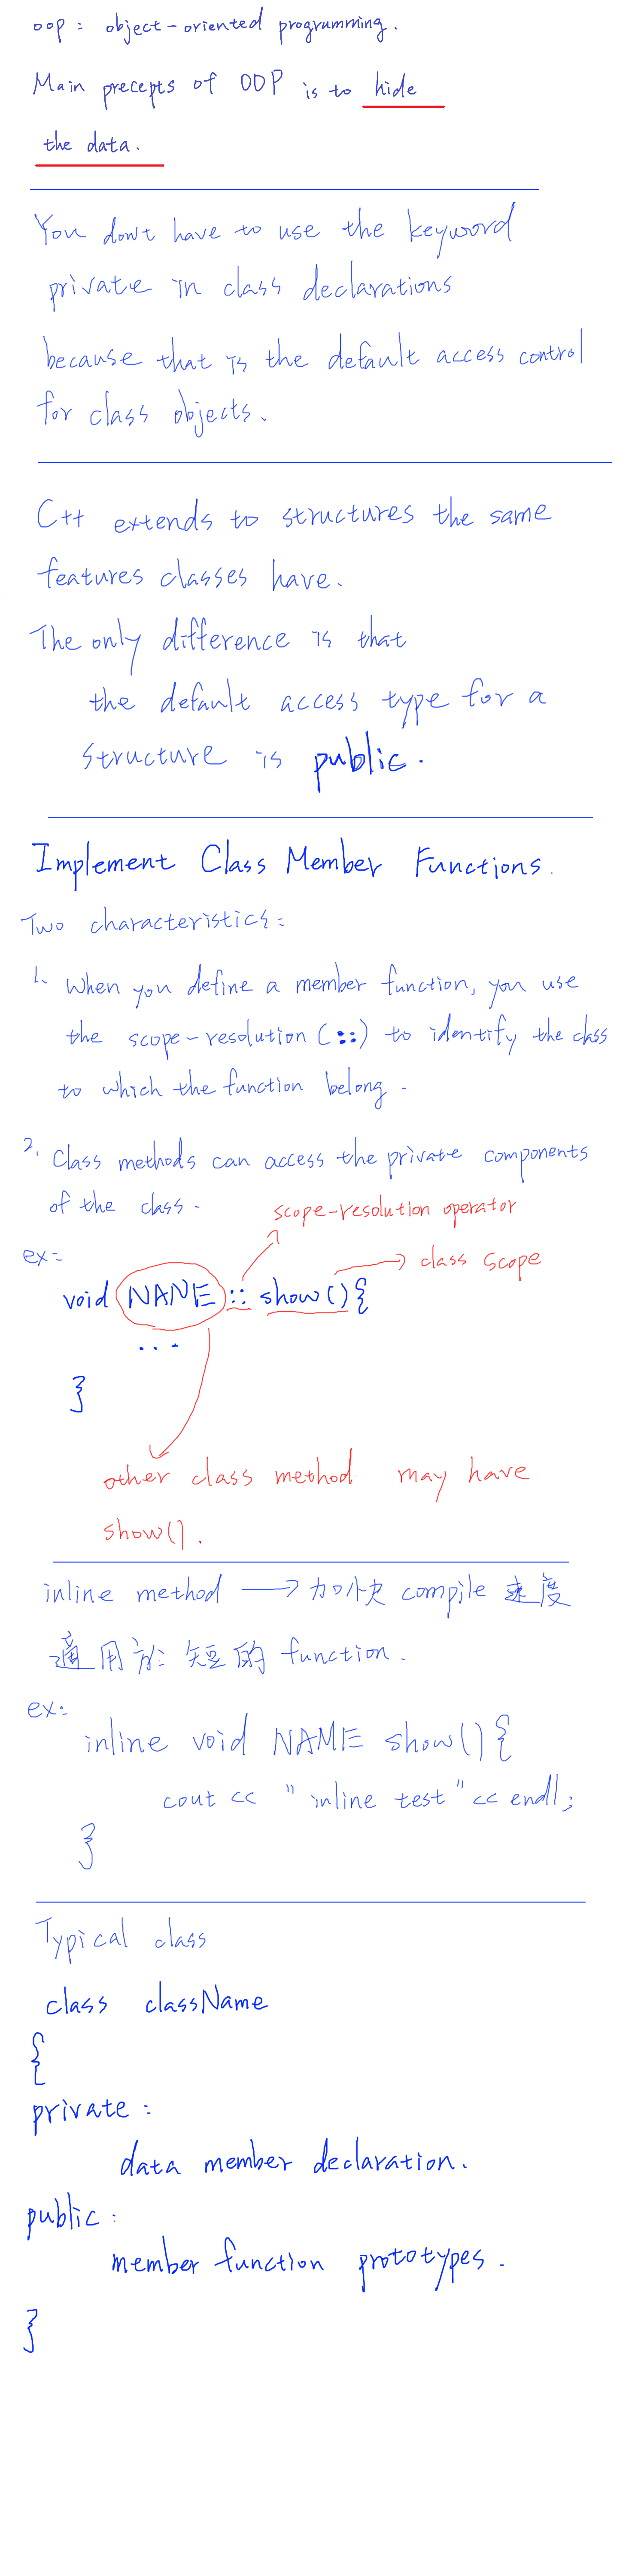 oop: object-oriented programming.
Main precepts of OOP is to hide
the data.
You don't have to use the keyword
private in class declarations
because that is the default access control
for class objects.
C++ extends to structures the same
features classes have.
The only difference is that
the default access type for a
structure is public.
Implement Class Member Functions.
Two characteristics:
1. When you define a member function, you use
the scope-resolution (::) to identify the class
to which the function belong.
2. Class methods can access the private components
of the class.
scope-resolution operator
ex:
class scope
void NAME :: show(){
...
}
other class method may have
show().
inline method → 加快 compile 速度
適用於短的 function.
ex:
inline void NAME show(){
cout << "inline test" << endl;
}
Typical class
class className
{
private:
data member declaration.
public:
member function prototypes.
}